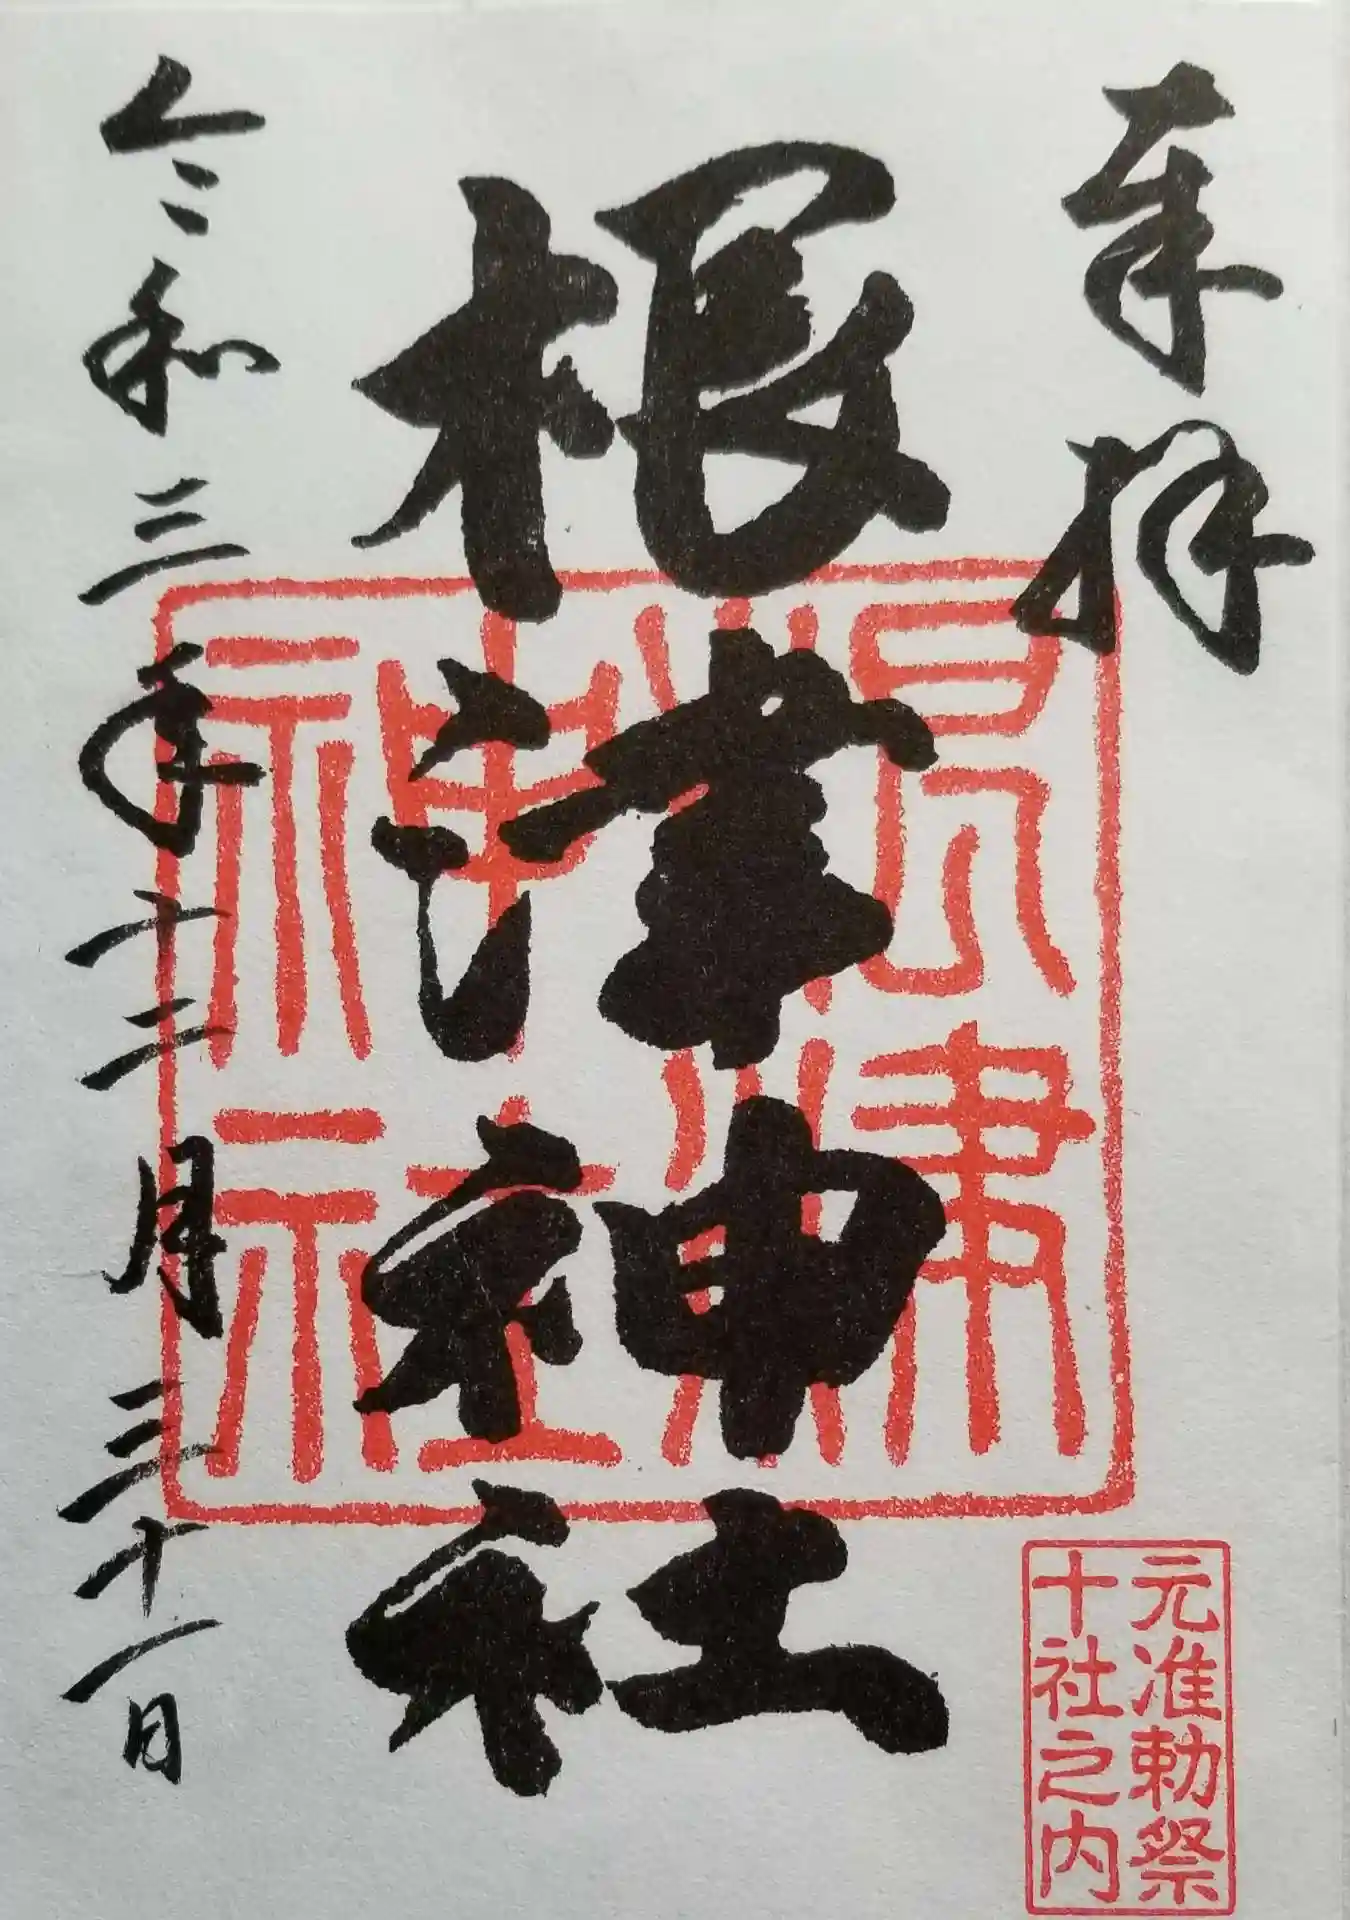 奉拝
根津神社
根津神社
令和三年十二月三十一日
元准勅祭
十社之内